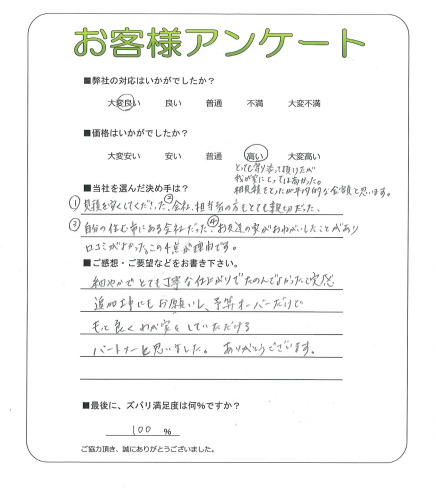 お客様アンケート
■弊社の対応はいかがでしたか？
大変良い 良い 普通 不満 大変不満
■価格はいかがでしたか？
大変安い 安い 普通 高い 大変高い
とても寄り添って頂けたが
我が家にとっては高かった。
相見積をとったが平均的な金額と思います。
■当社を選んだ決め手は？
①見積を安くしてくださった②会社、担当者の方もとても親切だった、
③自分の住む市にある会社だった④お友達の家がおねがいしたことがあり
口コミがよかった。この4点が理由です。
■ご感想・ご要望などをお書き下さい。
細やかでとても丁寧な仕上がりでたのんでよかったと実感
追加工事にもお願いし、予算オーバーだけで
もっと良くわが家をしていただける
パートナーと思いました。ありがとうございます。
■最後に、ズバリ満足度は何%ですか？
100 %
ご協力頂き、誠にありがとうございました。